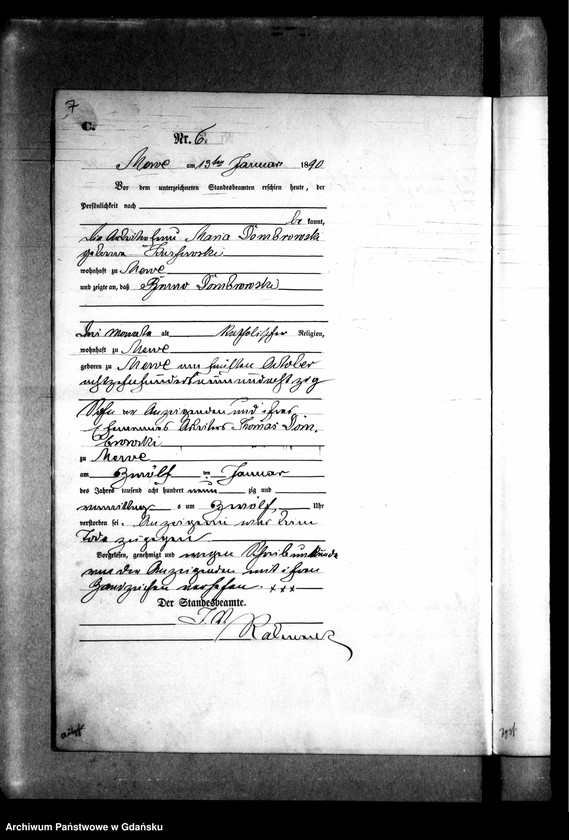 7
C.
Nr. 6.
Mewe am 13ten Januar 1890
Vor dem unterzeichneten Standesbeamten erschien heute, der
Persönlichkeit nach
be kannt,
die Arbeiterfrau Maria Dombrowski
geborne
wohnhaft zu Mewe
und zeigte an, daß Bruno Dombrowski
drei Monate alt, katholischer Religion,
wohnhaft zu Mewe
geboren zu Mewe am fünften October
achtzehnhundertneunundachtzig
Sohn der Anzeigenden und ihres
Ehemannes Arbeiters Thomas Dom-
browski
zu Mewe
am zwölf ten Januar
des Jahres tausend acht hundert neun zig und
Vormittags um zwölf Uhr
verstorben sei. Anzeigerin war beim
Tode zugegen
Vorgelesen, genehmigt und wegen Schreibunkunde
von der Anzeigenden mit ihrem
Handzeichen versehen. +++
Der Standesbeamte.
J.V.
Archiwum Państwowe w Gdańsku